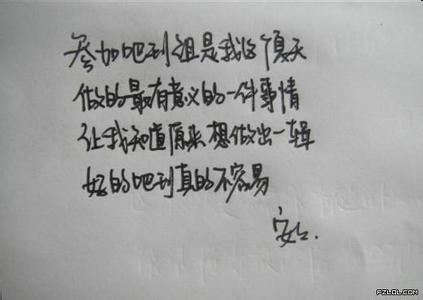 参加吧刊组是我这个夏天
做的最有意义的一件事情
让我知道原来想做出一辑
好的吧刊真的不容易
PZLDL.COM